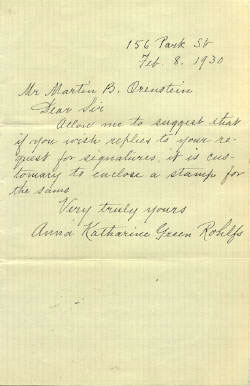 156 Park St
Feb. 8, 1930
Mr Martin B. Orenstein
Dear Sir
Allow me to suggest that
if you wish replies to your re-
quest for signatures, it is cus-
tomary to enclose a stamp for
the same
Very truly yours
Anna Katharine Green Rohlfs